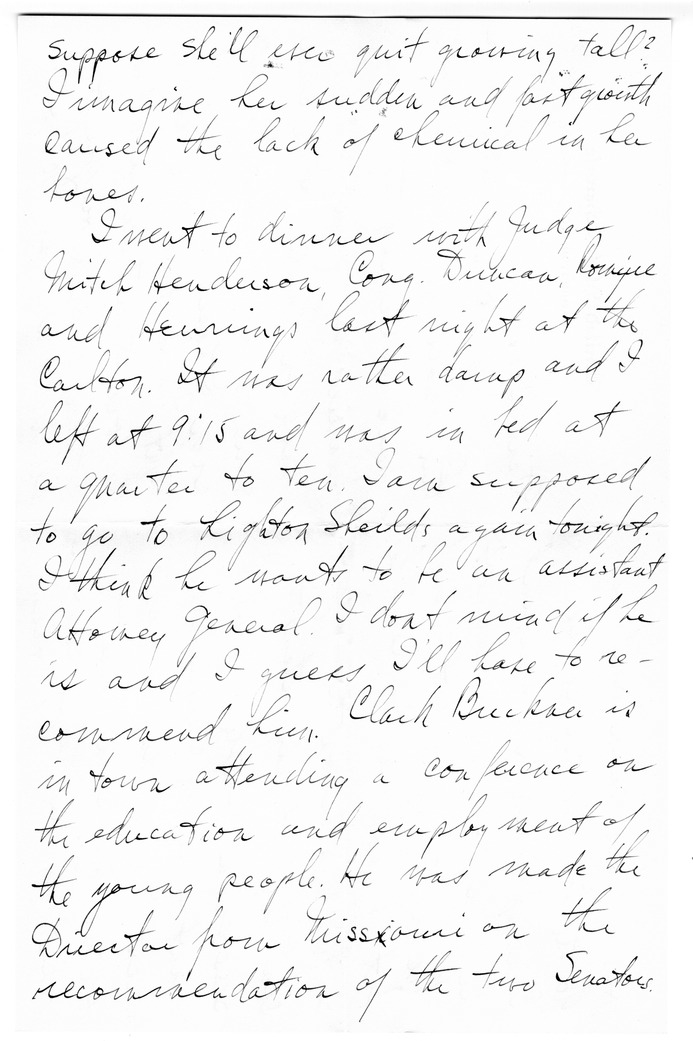 suppose she'll ever quit growing tall?
I imagine her sudden and fast growth
caused the lack of chemical in her
bones.
I went to dinner with Judge
Mitch Henderson, Cong. Duncan, Romjue
and Hennings last night at the
Carlton. It was rather damp and I
left at 9:15 and was in bed at
a quarter to ten. I am supposed
to go to Lighton Sheilds again tonight.
I think he wants to be an assistant
Attorney General. I dont mind if he
is and I guess I'll have to re-
commend him. Clark Buckner is
in town attending a conference on
the education and employment of
the young people. He was made the
Director from Missouri on the
recommendation of the two Senators.